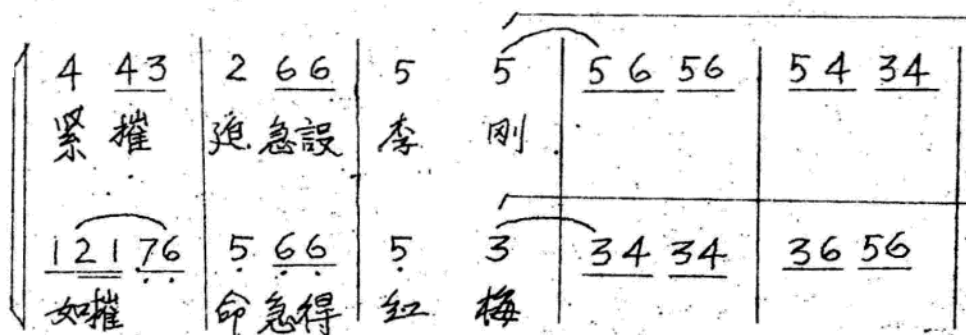 4 43 | 2 66 | 5 5 | 56 56 | 54 34 |
紧 摧 急設 李 刚
121 76 | 5 66 | 5 3 | 34 34 | 36 56
如摧 命急得 红 梅